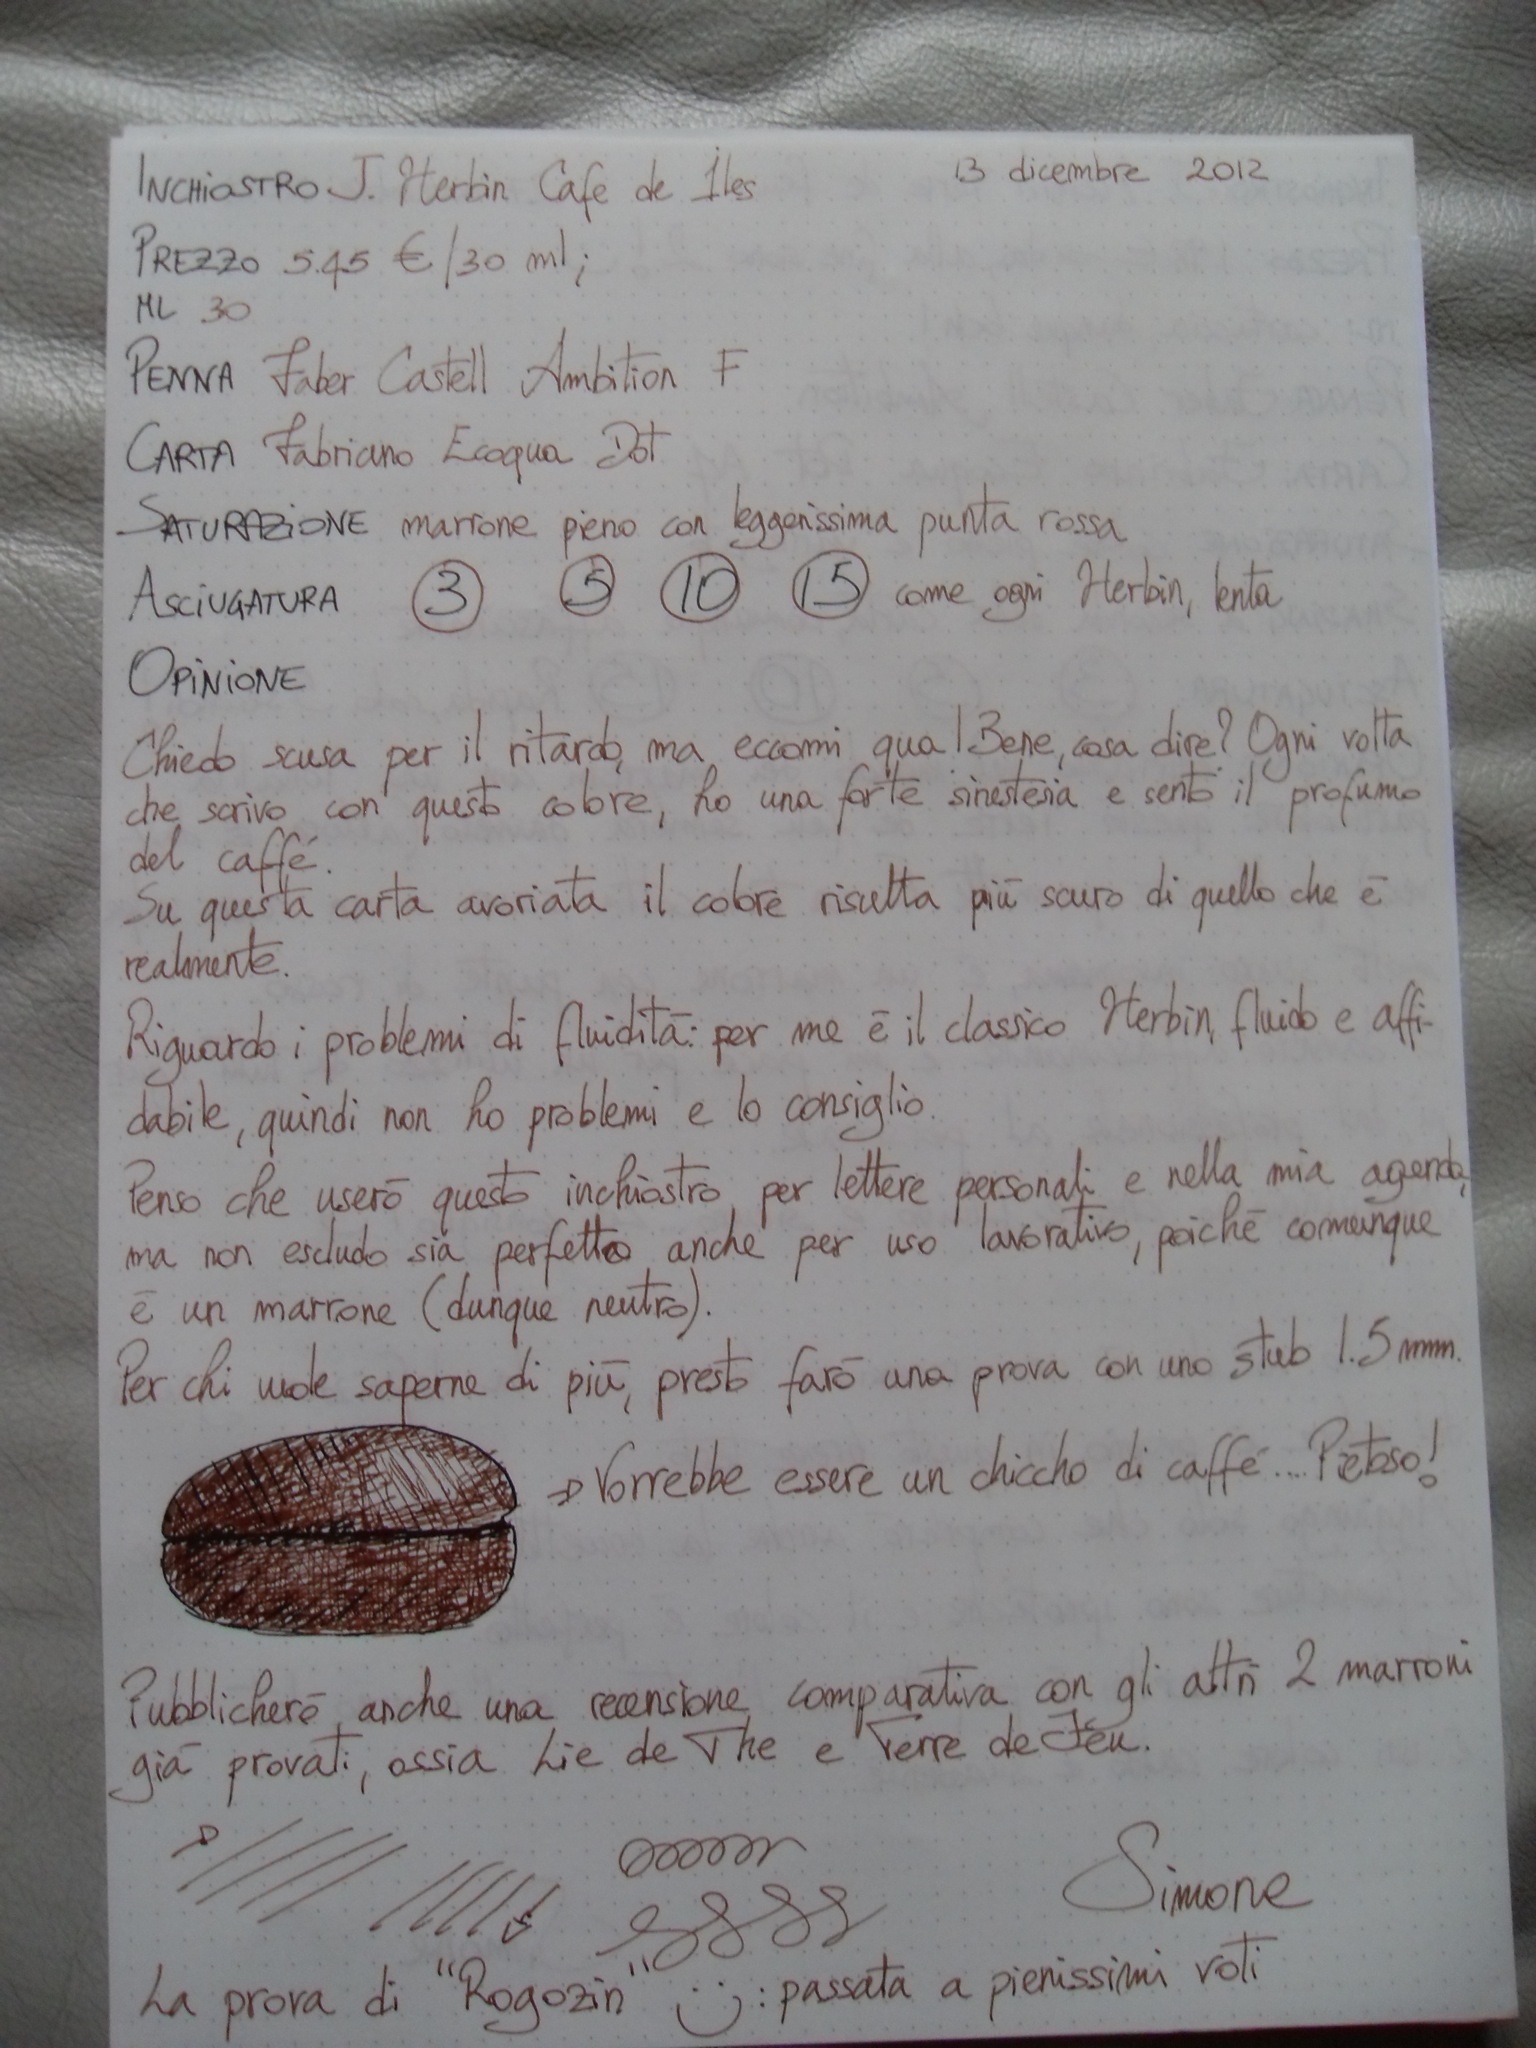 INCHIOSTRO J. Herbin Cafe de Iles 13 dicembre 2012
PREZZO 5.45 €/30 ml;
ML 30
PENNA Faber Castell Ambition F
CARTA Fabriano Ecoqua Dot
SATURAZIONE marrone pieno con leggerissima punta rossa
ASCIUGATURA 3 5 10 15 come ogni Herbin, lenta
OPINIONE
Chiedo scusa per il ritardo, ma eccomi qua! Bene, cosa dire? Ogni volta
che scrivo con questo colore, ho una forte sinestesia e sento il profumo
del caffé.
Su questa carta avoriata il colore risulta più scuro di quello che è
realmente.
Riguardo i problemi di fluidità: per me è il classico Herbin, fluido e affi-
dabile, quindi non ho problemi e lo consiglio.
Penso che userò questo inchiostro per lettere personali e nella mia agenda,
ma non escludo sia perfetto anche per uso lavorativo, poiché comunque
è un marrone (dunque neutro).
Per chi vuole saperne di più, presto farò una prova con uno stub 1.5 mm.
→ Vorrebbe essere un chiccho di caffé.... Pietoso!
Pubblicherò anche una recensione comparativa con gli altri 2 marroni
già provati, ossia Lie de The e Terre de Feu.
Simone
La prova di "Rogozin" :) : passata a pienissimi voti